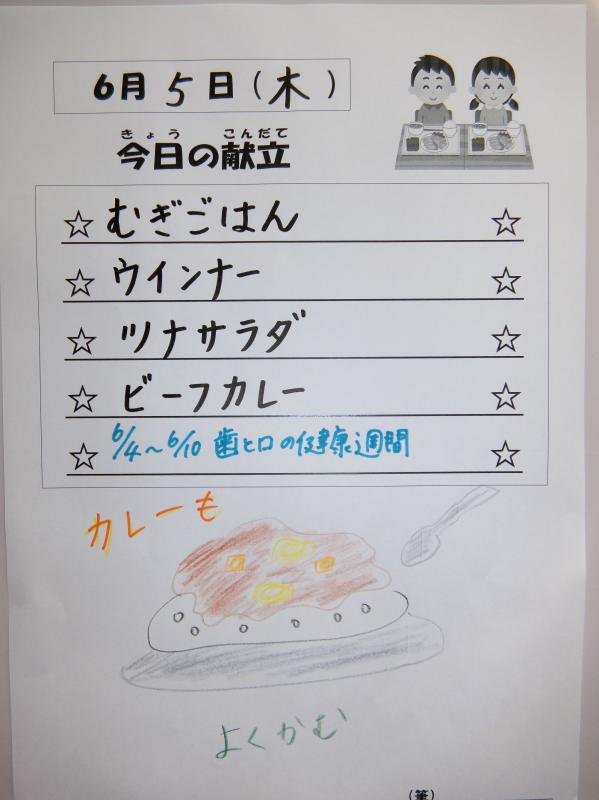 6月5日(木)
きょう こんだて
今日の献立
☆ むぎごはん ☆
☆ ウインナー ☆
☆ ツナサラダ ☆
☆ ビーフカレー ☆
☆ 6/4~6/10 歯と口の健康週間 ☆
カレーも
よくかむ
(筆)